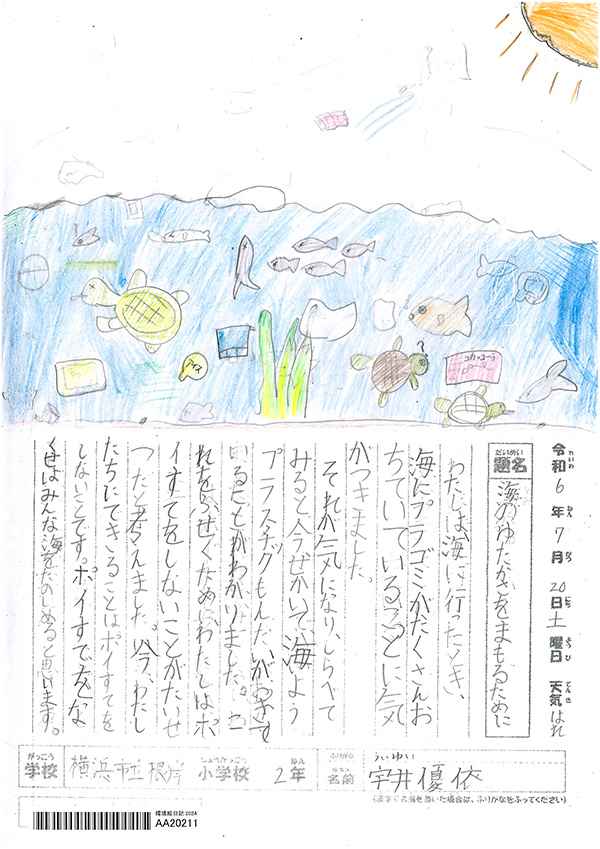 アイス
コカ・コーラ
令和6年7月20日土曜日 天気はれ
れいわ ねん がつ にち ようび てんき
だいめい
題名 海のゆたかさをまもるために
わたしは海に行ったとき、
海にプラゴミがたくさんお
ちていていることに気
がつきました。
それが気になり、しらべて
みると今せかいで海よう
プラスチックもんだいがおきて
いることがわかりました。こ
れをふせぐためにわたしはポ
イすてをしないことがたいせ
つだと考えました。今、わたし
たちにできることはポイすてを
しないことです。ポイすてをな
くせばみんな海をたのしめると思います。
がっこう しょうがっこう ねん ふりがな ういゆい
学校 横浜市立根岸 小学校 2年 名前 宇井優依
(漢字で名前を書いた場合は、ふりがなをふってください)
環境絵日記2024
AA20211